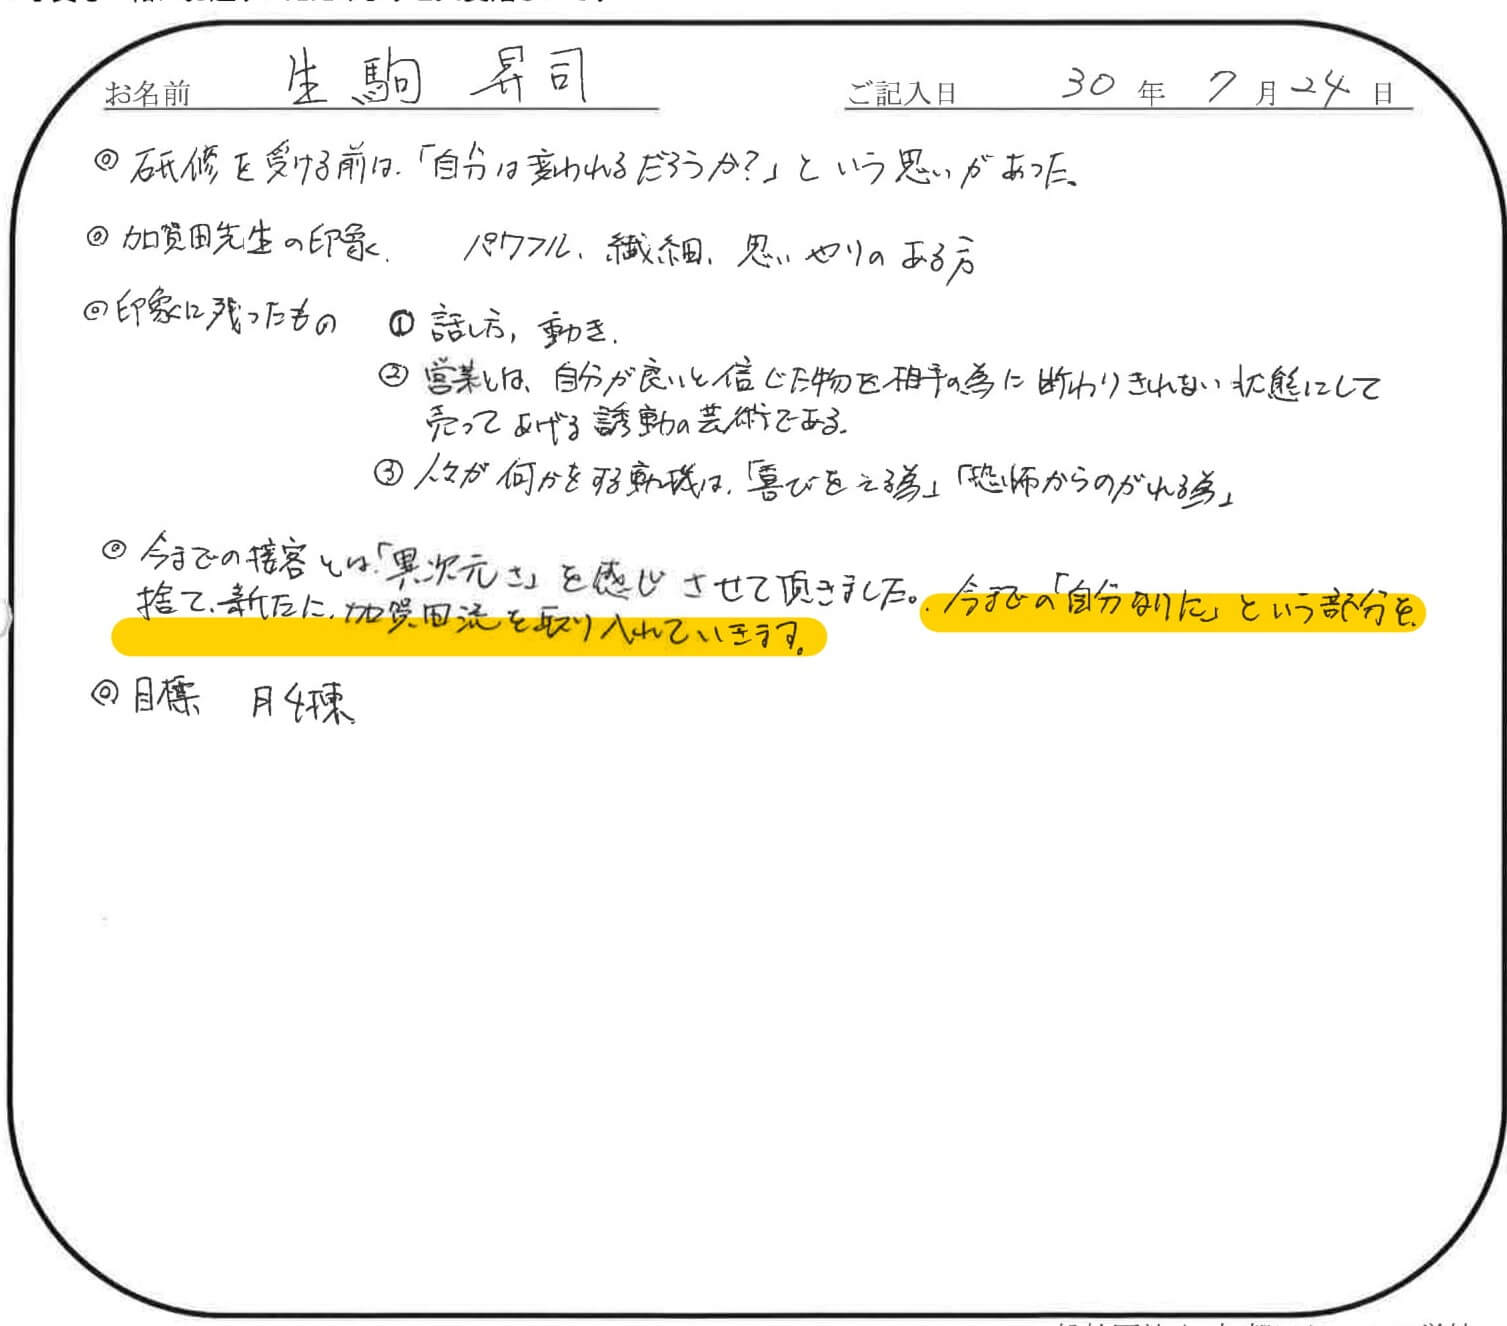 お名前 生駒 昇司 ご記入日 30年 7月24日
◎ 研修を受ける前は、「自分は変われるだろうか?」という思いがあった。
◎ 加賀田先生の印象、 パワフル、繊細、思いやりのある方
◎ 印象に残ったもの ① 話し方, 動き.
② 営業とは、自分が良いと信じた物を相手の為に断わりきれない状態にして
売ってあげる誘動の芸術である。
③ 人々が何かをする動機は、「喜びをえる為」「恐怖からのがれる為」
◎ 今までの接客とは「異次元さ」を感じさせて頂きました。今までの「自分なりに」という部分を、
捨て、新たに、加賀田流を取り入れていきます。
◎ 目標 月4棟